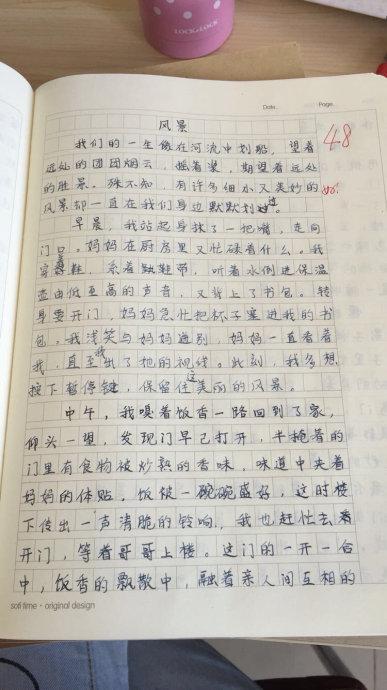 LOCK&LOCK
Date. Page.
风景
48
我们的一生像在河流中划船，望着
远处的团团烟云，摇着桨，期望着远处
的胜景。殊不知，有许多细小又美妙的
风景却一直在我们身边默默划过。
早晨，我站起身抹了一把嘴，走向
门口。妈妈在厨房里又忙碌着什么。我
穿着鞋，系着鞋带，听着水倒进保温
壶由低至高的声音，又背上了书包。转
身要开门，妈妈急忙把杯子塞进我的书
包。我浅笑与妈妈道别，妈妈一直看着
我，直至我出了她的视线。此刻，我多想
按下暂停键，保留住这美丽的风景。
中午，我嗅着饭香一路回到了家，
仰头一望，发现门早已打开，半掩着的
门里有食物被炒熟的香味，味道中夹着
妈妈的体贴，饭被一碗碗盛好，这时楼
下传出一声清脆的铃响，我也赶忙去看
开门，等着哥哥上楼。这门的一开一合
中，饭香的飘散中，融着亲人间互相的
sofi time · original design